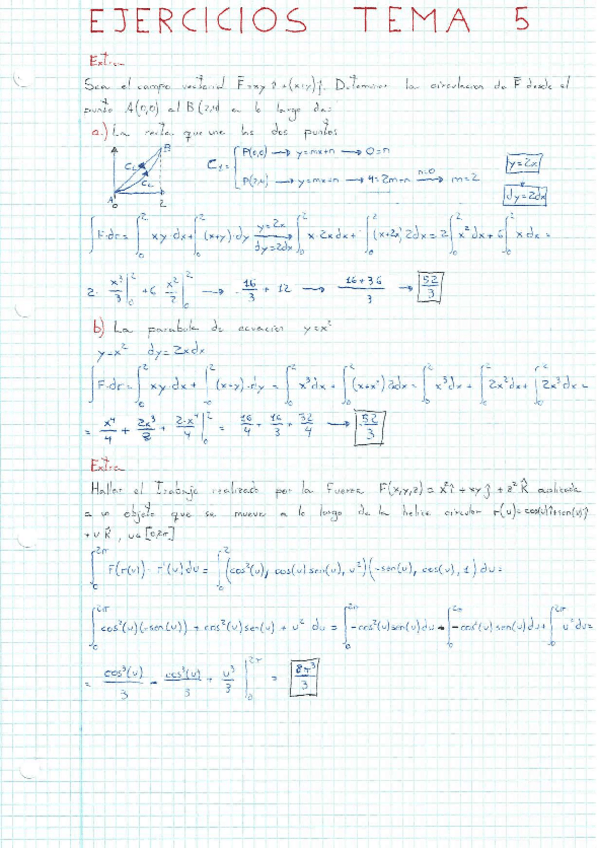 EJERCICIOS TEMA 5
Extra
Sea el campo vectorial F=xy î+(x+y)ĵ. Determinar la circulacion de F desde el
punto A(0,0) al B(2,4) a lo largo de:
a.) La recta que une los dos puntos
B
C₁
C₂
A 0 2
C₁= P(0,0) → y=mx+n → 0=n
P(2,4) → y=mx+n → 4=2m+n n=0 → m=2
y=2x
dy=2dx
∫F·dr= ∫₀² xy·dx+ ∫₀² (x+y)·dy y=2x dy=2dx → ∫₀² x·2xdx+ ∫₀² (x+2x)2dx = 2∫₀² x²dx + 6∫₀² xdx =
2· x³/3 |₀² +6 x²/2 |₀² → 16/3 + 12 → 16+36/3 → 52/3
b) La parabola de ecuacion y=x²
y=x² dy=2xdx
∫F·dr= ∫₀² xy·dx+ ∫₀² (x+y)·dy = ∫₀² x³dx + ∫₀² (x+x²)2xdx = ∫₀² x³dx + ∫₀² 2x²dx + ∫₀² 2x³dx =
= x⁴/4 + 2x³/3 + 2·x⁴/4 |₀² = 16/4 + 16/3 + 32/4 → 52/3
Extra
Hallar el Trabajo realizado por la Fuerza F(x,y,z) = x²î + xyĵ + z²k̂ realizada
a un objeto que se mueve a lo largo de la helice circular r(u)=cos(u)î+sen(u)ĵ
+uk̂, u∈[0,2π]
∫₀^2π F(r(u))·r'(u)du = ∫₀² (cos²(u), cos(u)sen(u), u²)(-sen(u), cos(u), 1)du=
∫₀^2π cos²(u)(-sen(u)) + cos²(u)sen(u) + u² du = ∫₀^2π -cos²(u)sen(u)du - ∫₀^2π -cos²(u)sen(u)du + ∫₀^2π u²du=
= cos³(u)/3 - cos³(u)/3 + u³/3 |₀^2π = 8π³/3